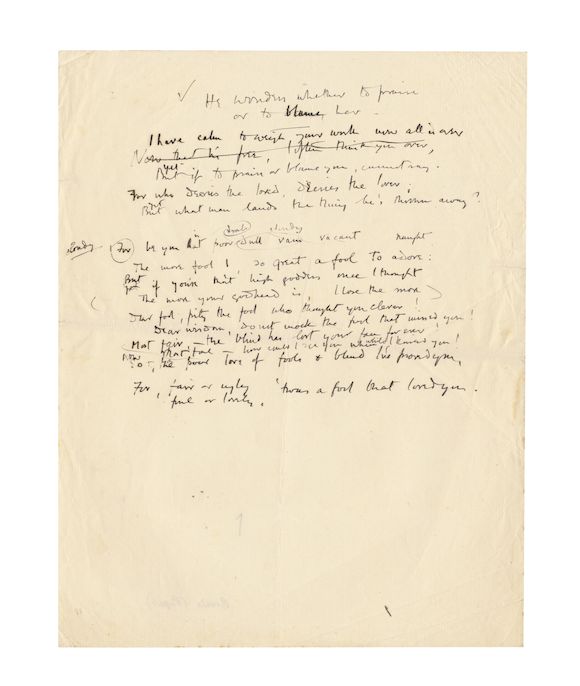 ✓ He wonders whether to praise
or to blame her.
I have calm to weigh your worth now all is over
Now that his free, I often think you over,
yet
But if to praise or blame you, cannot say.
For who decries the loved, decries the lover;
Yet
But what man lauds the thing he's thrown away?
cloudy
For be you but poor dull vain vacant naught
The more fool I, so great a fool to adore:
But
if you're that high goddess once I thought
(The more your godhead is, I lose the more)
Dear fool, pity the fool who thought you clever!
Dear wisdom, do not mock the fool that missed you!
Most fair, — the blind has lost your face for ever!
Most foul — how could I see you while I kissed you!
So, the poor love of fools & blind I've proved you,
For, fair or ugly, 'twas a fool that loved you.
foul or lovely,